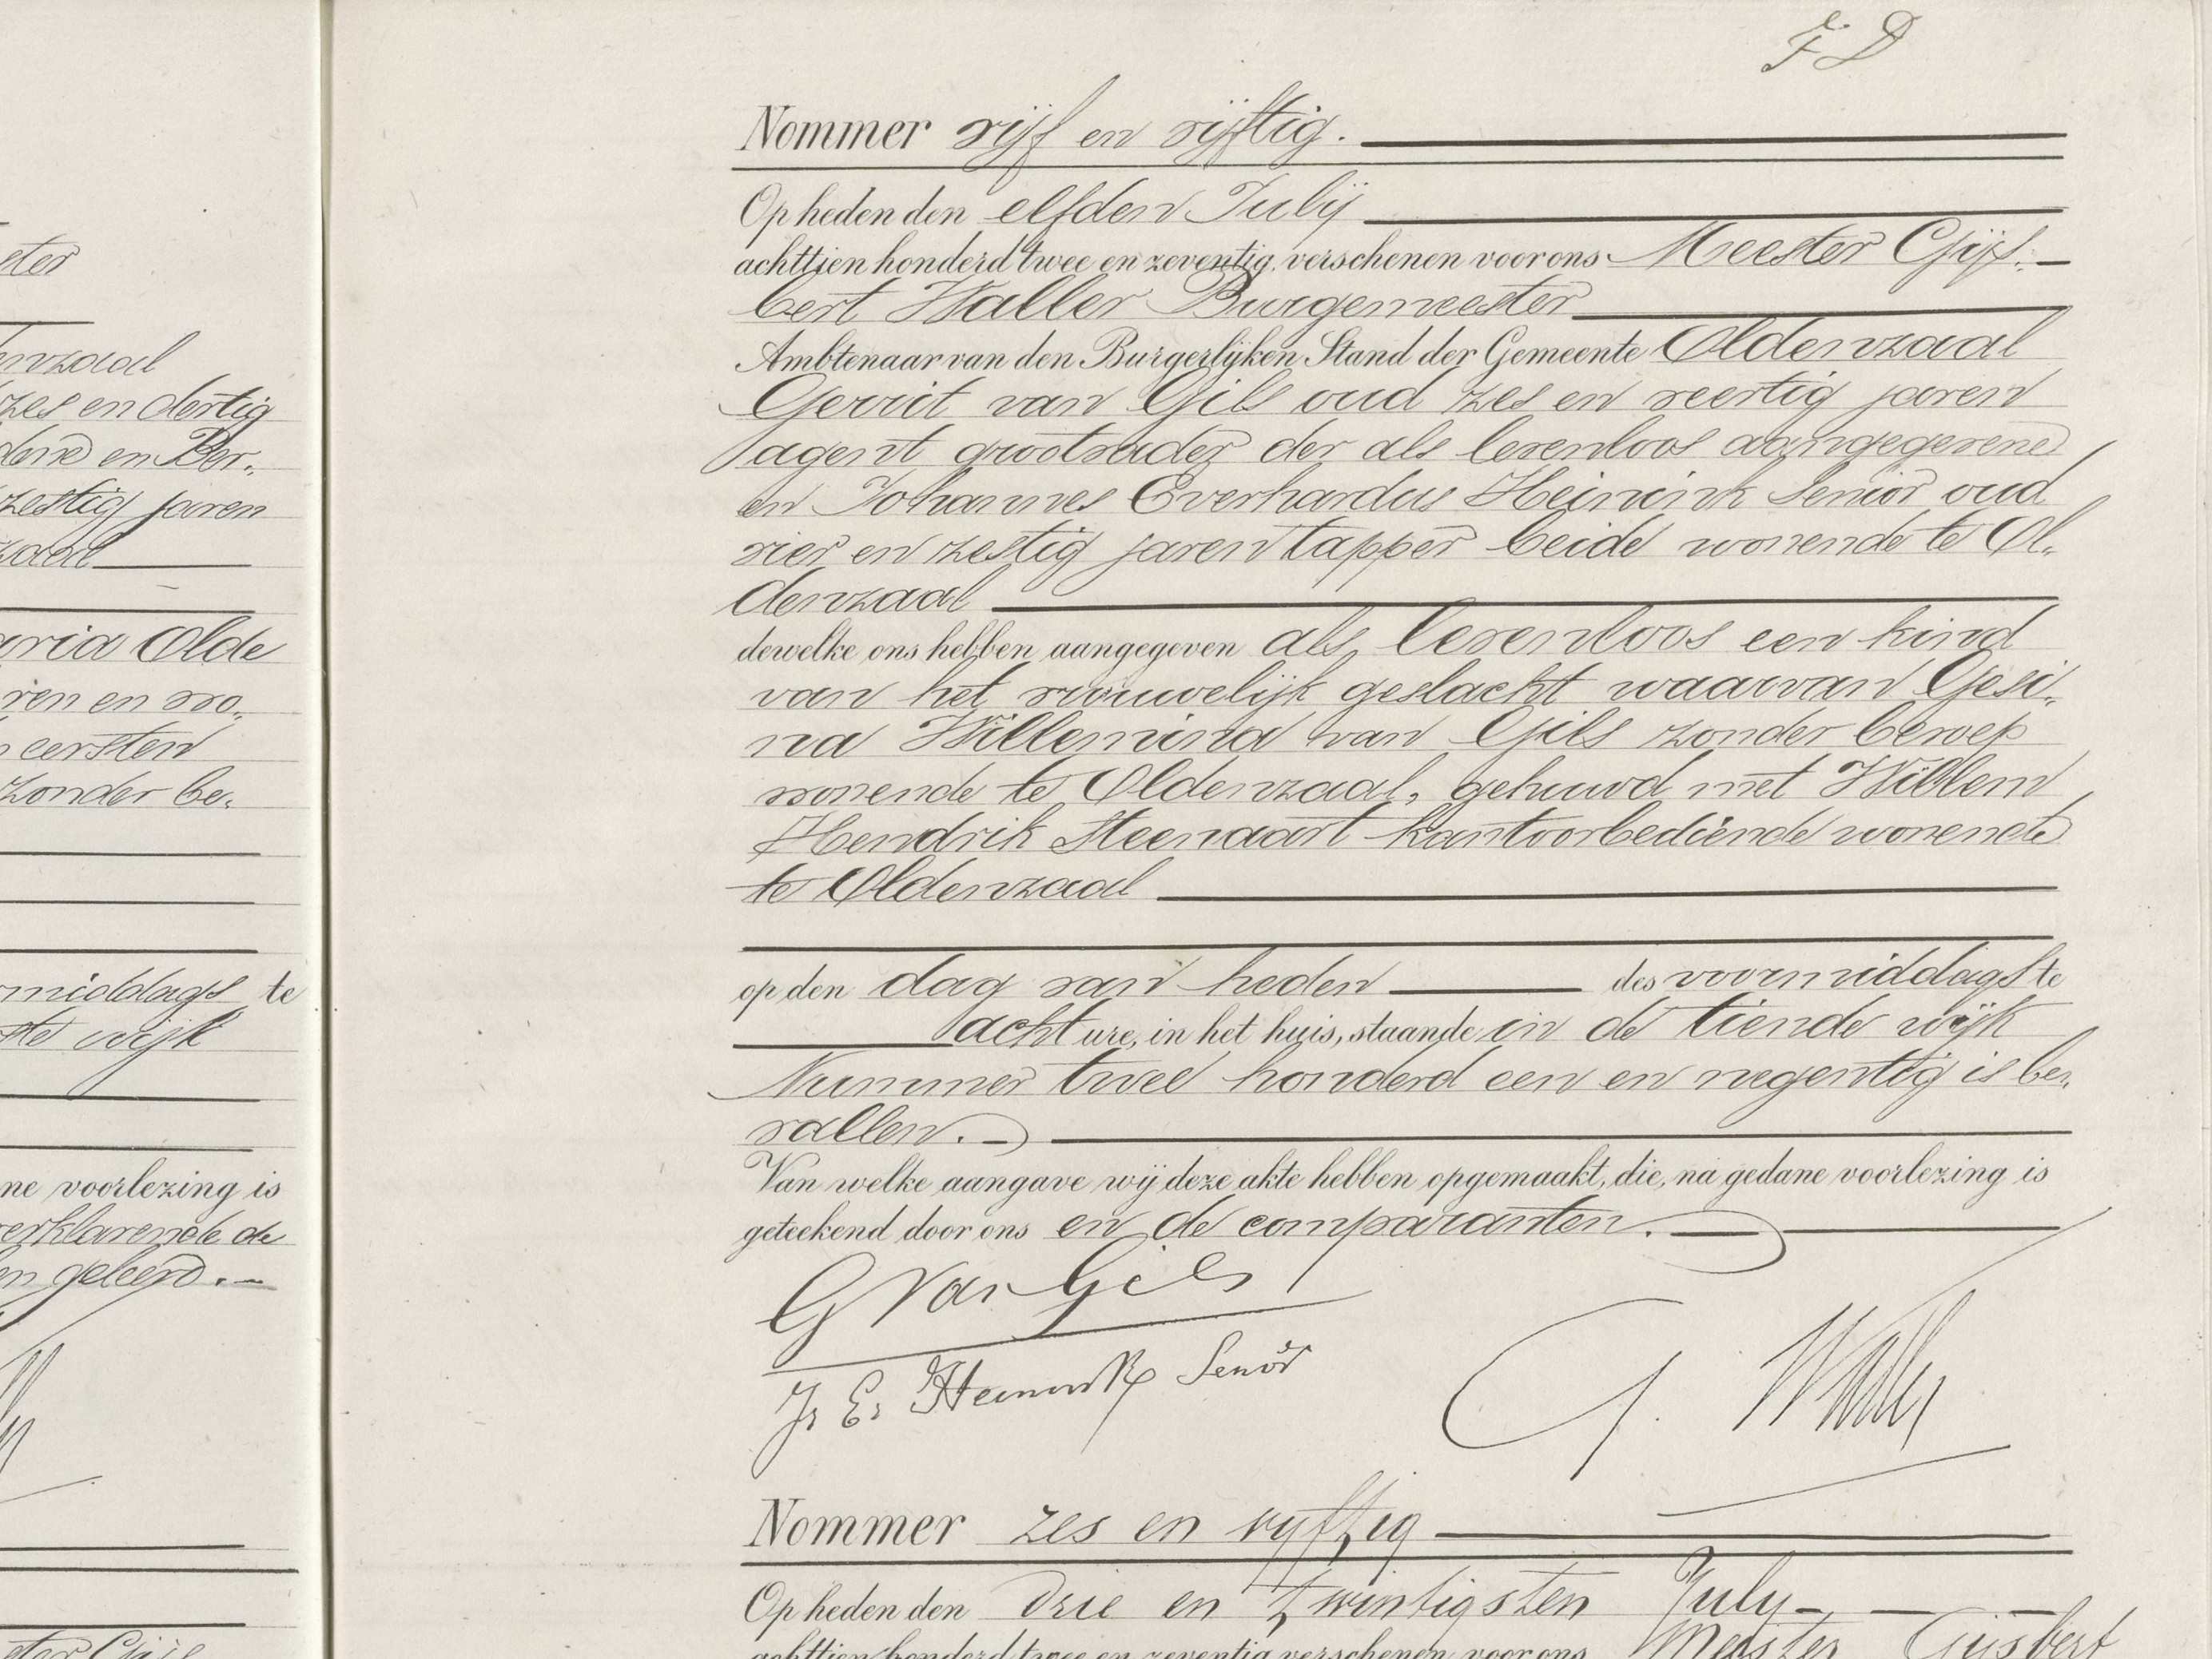 ster
enzaal
zes en dertig
zestig jaren
zaal
aria Olde
ren en wo„
eersten
zonder be„
middags te
wijk
ne voorlezing is
verklarende de
geleerd. —
F D
Nommer vijf en vijftig.
Op heden den elfden Julij
achttien honderd twee en zeventig, verschenen voor ons Meester Gijs„
bert Waller Burgemeester
Ambtenaar van den Burgerlijken Stand der Gemeente Oldenzaal
Gerrit van Gils oud zes en veertig jaren
agent grootvader der als levenloos aangegevene
en Johannes Everhardus Heinink Senior oud
vier en zestig jaren tapper beide wonende te Ol„
denzaal
dewelke ons hebben aangegeven als levenloos een kind
van het vrouwelijk geslacht waarvan Gesi„
na Willemina van Gils zonder beroep
wonende te Oldenzaal, gehuwd met Willem
Hendrik Steenaart kantoorbediende wonende
te Oldenzaal
op den dag van heden des voormiddags te
acht ure, in het huis, staande in de tiende wijk
Nummer twee honderd een en negentig is be„
vallen. —
Van welke aangave wij deze akte hebben opgemaakt, die, na gedane voorlezing is
geteekend door ons en de comparanten. —
G van Gils
J. E. Heinink Senior
G. Waller
Nommer zes en vyftig
Op heden den drie en twintigsten July
achttien honderd twee en zeventig verschenen voor ons Meester Gijsbert